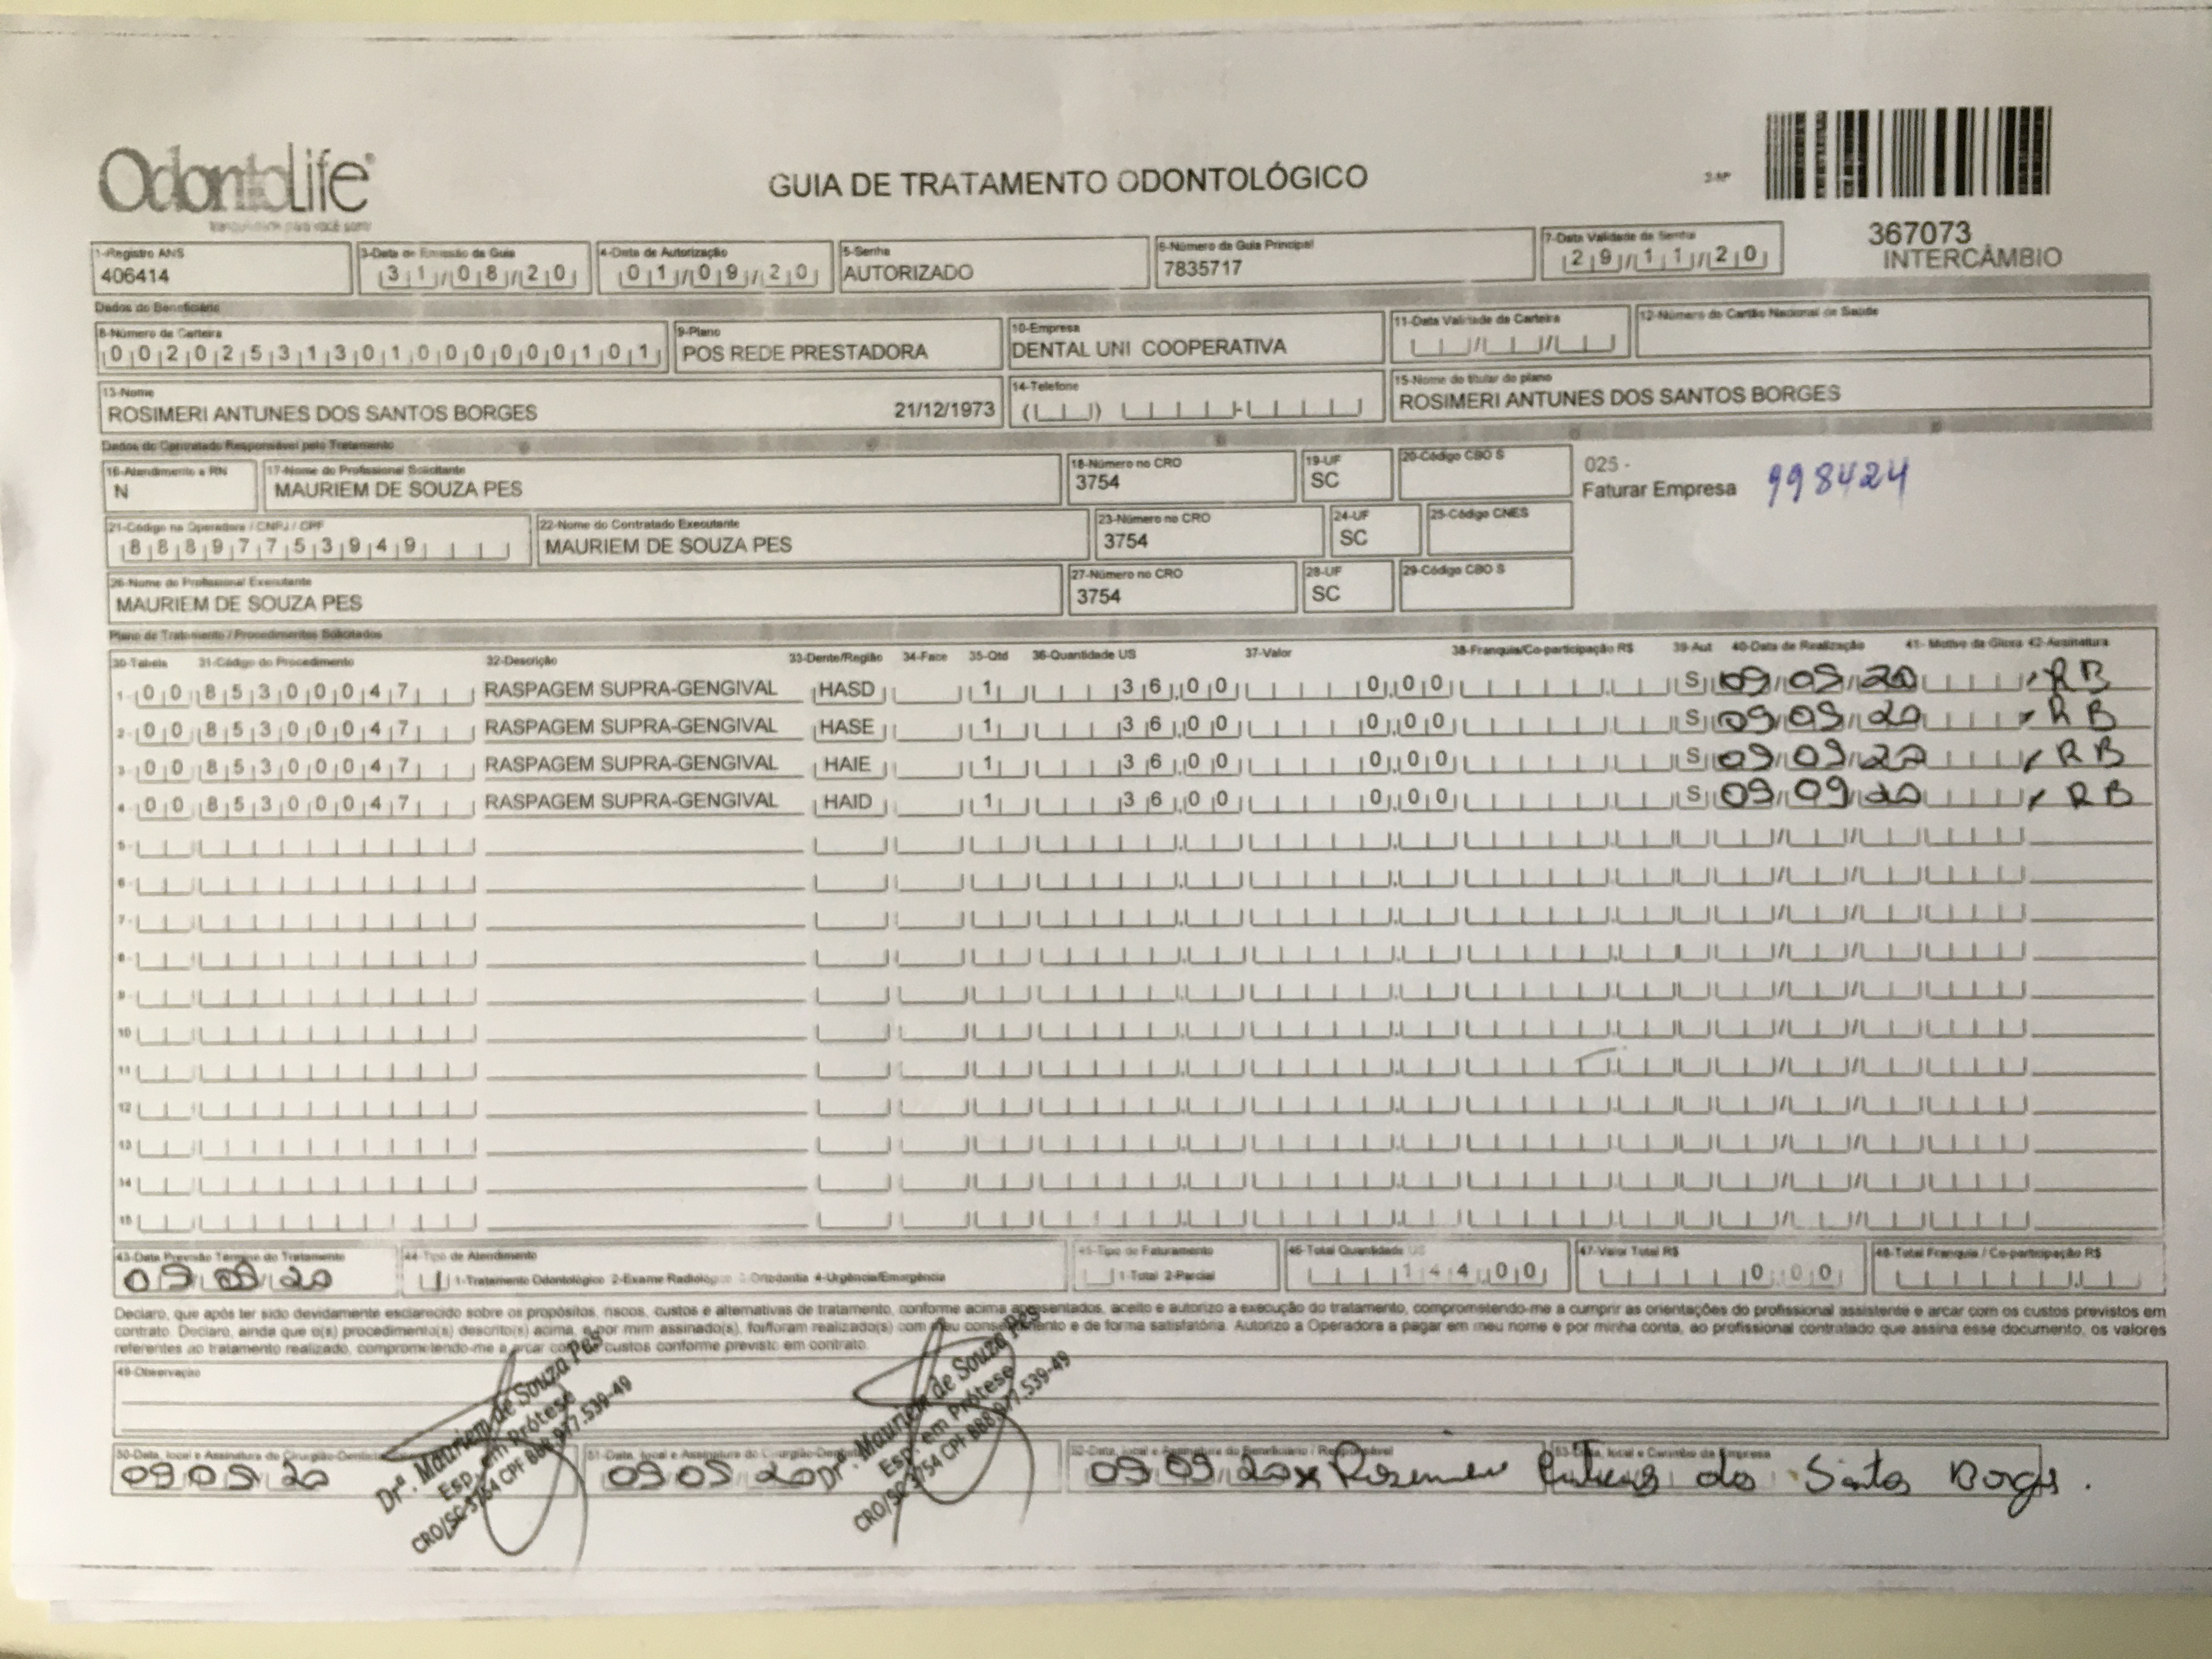 OdontoLife®
tranquilidade para você sorrir
GUIA DE TRATAMENTO ODONTOLÓGICO
367073
INTERCÂMBIO
1-Registro ANS
406414
3-Data de Emissão da Guia
31/08/20
4-Data de Autorização
01/09/20
5-Senha
AUTORIZADO
6-Número da Guia Principal
7835717
7-Data Validade da Senha
29/11/20
Dados do Beneficiário
8-Número da Carteira
00202531301000000101
9-Plano
POS REDE PRESTADORA
10-Empresa
DENTAL UNI COOPERATIVA
11-Data Validade da Carteira
12-Número do Cartão Nacional de Saúde
13-Nome
ROSIMERI ANTUNES DOS SANTOS BORGES 21/12/1973
14-Telefone
15-Nome do titular do plano
ROSIMERI ANTUNES DOS SANTOS BORGES
Dados do Contratado Responsável pelo Tratamento
16-Atendimento a RN
N
17-Nome do Profissional Solicitante
MAURIEM DE SOUZA PES
18-Número no CRO
3754
19-UF
SC
20-Código CBO S
025 -
Faturar Empresa 998424
21-Código na Operadora / CNPJ / CPF
88897753949
22-Nome do Contratado Executante
MAURIEM DE SOUZA PES
23-Número no CRO
3754
24-UF
SC
25-Código CNES
26-Nome do Profissional Executante
MAURIEM DE SOUZA PES
27-Número no CRO
3754
28-UF
SC
29-Código CBO S
Plano de Tratamento / Procedimentos Solicitados
30-Tabela 31-Código do Procedimento 32-Descrição 33-Dente/Região 34-Face 35-Qtd 36-Quantidade US 37-Valor 38-Franquia/Co-participação R$ 39-Aut 40-Data de Realização 41- Motivo da Glosa 42-Assinatura
1- 00 85300047 RASPAGEM SUPRA-GENGIVAL HASD 1 36,00 0,00 S 09/09/20 RB
2- 00 85300047 RASPAGEM SUPRA-GENGIVAL HASE 1 36,00 0,00 S 09/09/20 RB
3- 00 85300047 RASPAGEM SUPRA-GENGIVAL HAIE 1 36,00 0,00 S 09/09/20 RB
4- 00 85300047 RASPAGEM SUPRA-GENGIVAL HAID 1 36,00 0,00 S 09/09/20 RB
5-
6-
7-
8-
9-
10
11
12
13
14
15
43-Data Previsão Término do Tratamento
09 09 20
44-Tipo de Atendimento
1-Tratamento Odontológico 2-Exame Radiológico 3-Ortodontia 4-Urgência/Emergência
45-Tipo de Faturamento
1-Total 2-Parcial
46-Total Quantidade US
144,00
47-Valor Total R$
0,00
48-Total Franquia / Co-participação R$
Declaro, que após ter sido devidamente esclarecido sobre os propósitos, riscos, custos e alternativas de tratamento, conforme acima apresentados, aceito e autorizo a execução do tratamento, comprometendo-me a cumprir as orientações do profissional assistente e arcar com os custos previstos em
contrato. Declaro, ainda que o(s) procedimento(s) descrito(s) acima, e por mim assinado(s), foi/foram realizado(s) com meu consentimento e de forma satisfatória. Autorizo a Operadora a pagar em meu nome e por minha conta, ao profissional contratado que assina esse documento, os valores
referentes ao tratamento realizado, comprometendo-me a arcar com os custos conforme previsto em contrato.
49-Observação
50-Data, local e Assinatura do Cirurgião-Dentista
09 09 20
Drª. Mauriem de Souza Pes
Esp. em Prótese
CRO/SC-3754 CPF 888.977.539-49
51-Data, local e Assinatura do Cirurgião-Dentista
09 09 20
Drª. Mauriem de Souza Pes
Esp. em Prótese
CRO/SC-3754 CPF 888.977.539-49
52-Data, local e Assinatura do Beneficiário / Responsável
09 09 20 x Rosimeri Antunes dos Santos Borges.
53-Data, local e Carimbo da Empresa